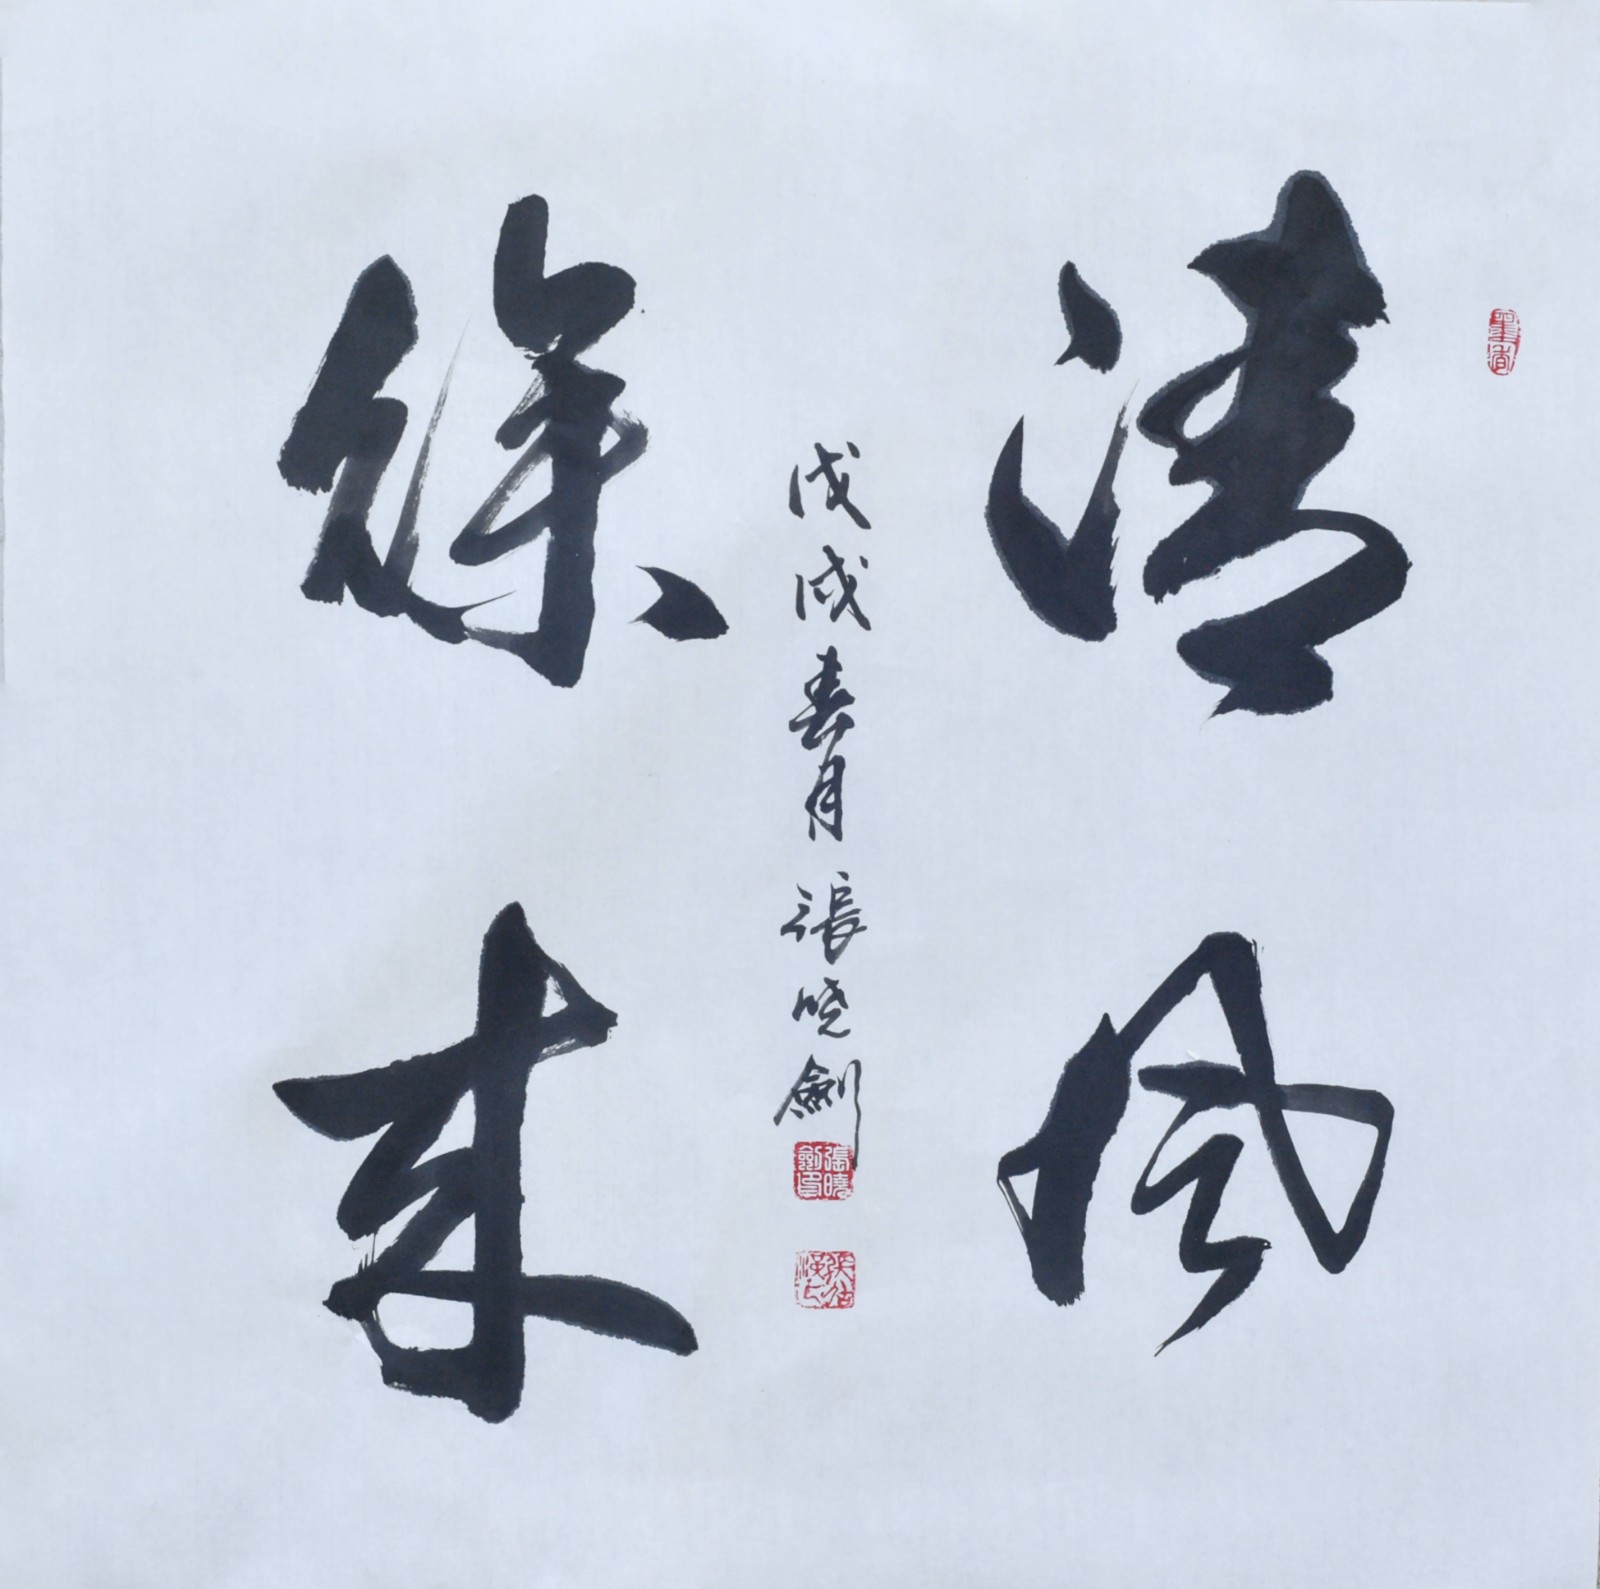 清风
徐来
戊戌春月 張晓劍
張曉劍印